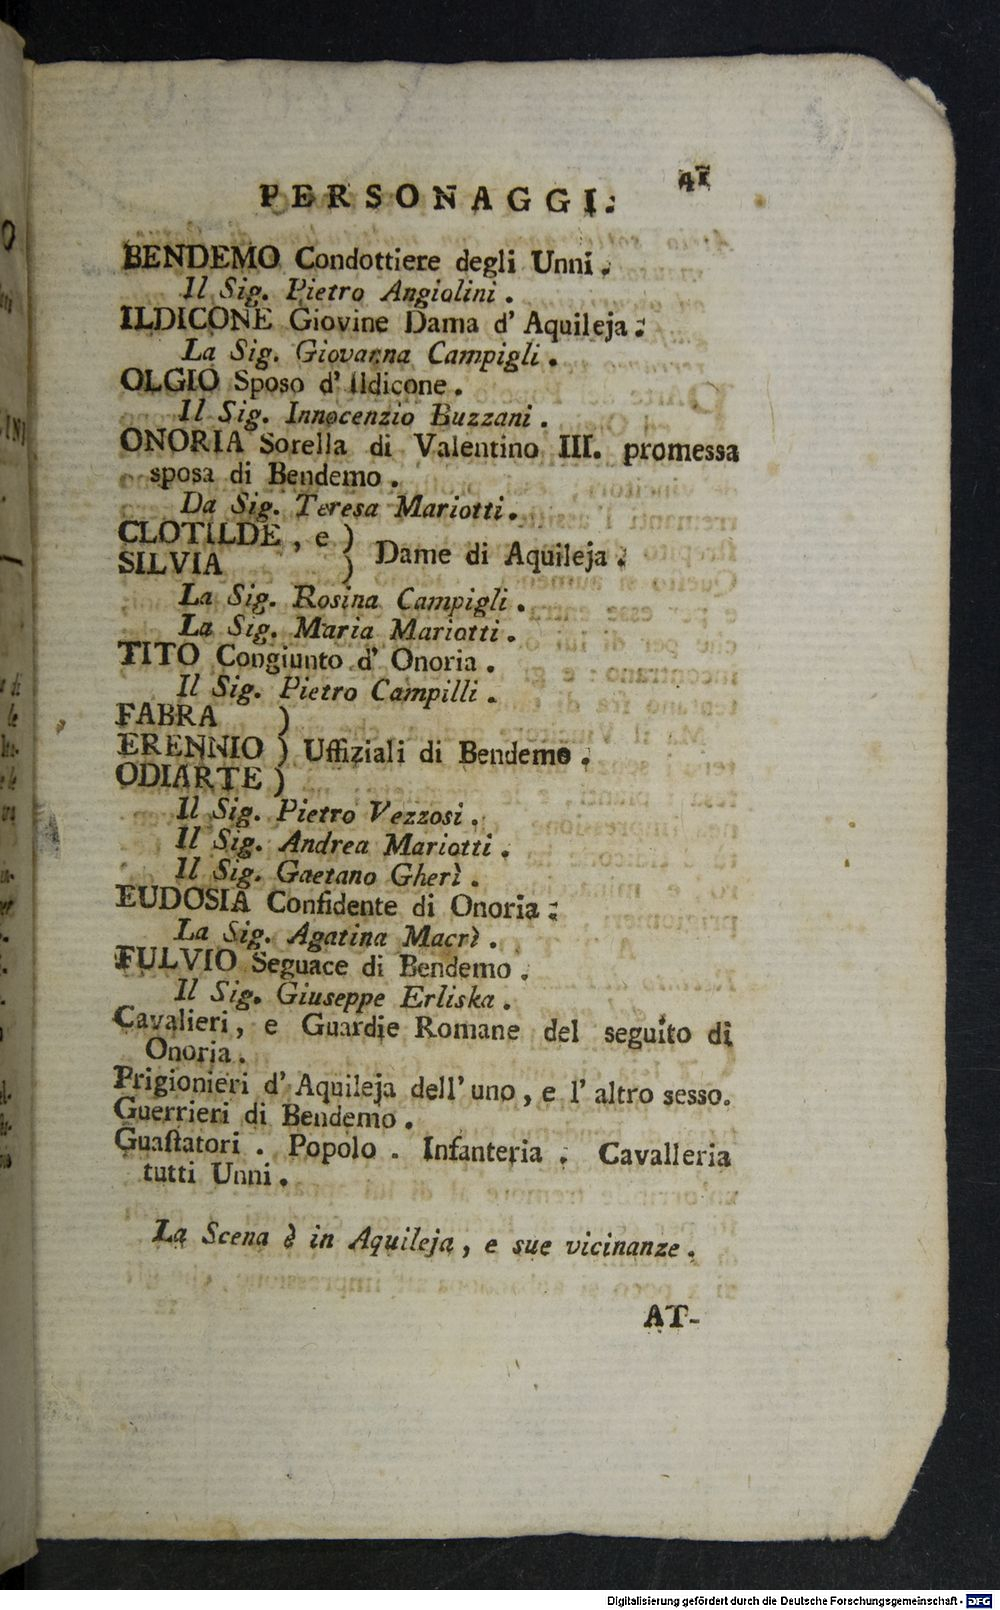 41
PERSONAGGI.
BENDEMO Condottiere degli Unni.
Il Sig. Pietro Angiolini.
ILDICONE Giovine Dama d' Aquileja.
La Sig. Giovanna Campigli.
OLGIO Sposo d' Ildicone.
Il Sig. Innocenzio Buzzani.
ONORIA Sorella di Valentino III. promessa
sposa di Bendemo.
Da Sig. Teresa Mariotti.
CLOTILDE, e )
SILVIA ) Dame di Aquileja.
La Sig. Rosina Campigli.
La Sig. Maria Mariotti.
TITO Congiunto d' Onoria.
Il Sig. Pietro Campilli.
FABRA )
ERENNIO ) Uffiziali di Bendemo.
ODIARTE )
Il Sig. Pietro Vezzosi.
Il Sig. Andrea Mariotti.
Il Sig. Gaetano Gherì.
EUDOSIA Confidente di Onoria.
La Sig. Agatina Macrì.
FULVIO Seguace di Bendemo.
Il Sig. Giuseppe Erliska.
Cavalieri, e Guardie Romane del seguito di
Onoria.
Prigionieri d' Aquileja dell' uno, e l' altro sesso.
Guerrieri di Bendemo.
Guaſtatori. Popolo. Infanteria. Cavalleria
tutti Unni.
La Scena è in Aquileja, e sue vicinanze.
AT-
Digitalisierung gefördert durch die Deutsche Forschungsgemeinschaft - DFG